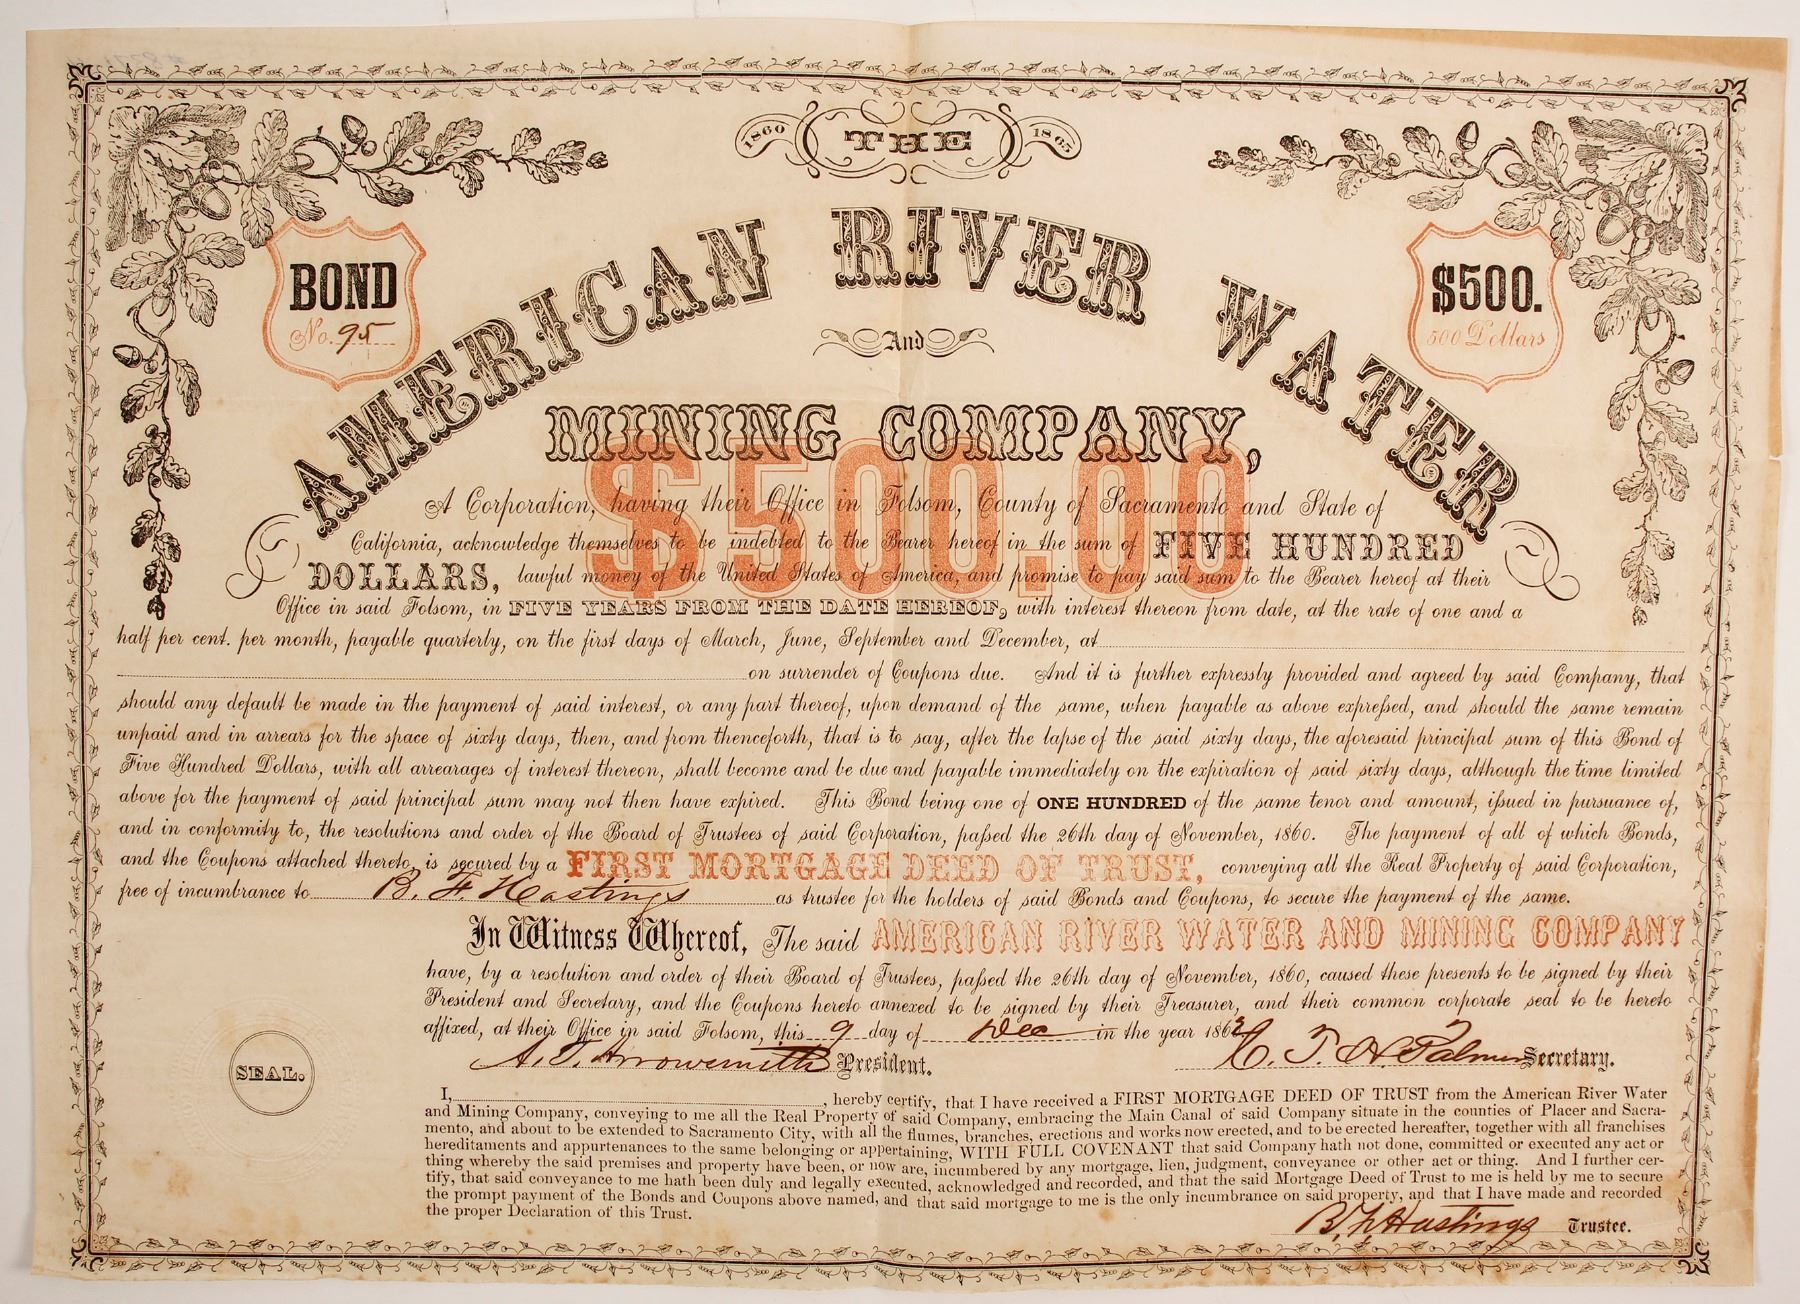 1860 THE 1865
AMERICAN RIVER WATER
BOND
No. 95
$500.
500 Dollars
And
MINING COMPANY,
$500.00
A Corporation, having their Office in Folsom, County of Sacramento and State of
California, acknowledge themselves to be indebted to the Bearer hereof in the sum of FIVE HUNDRED
DOLLARS, lawful money of the United States of America, and promise to pay said sum to the Bearer hereof at their
Office in said Folsom, in FIVE YEARS FROM THE DATE HEREOF, with interest thereon from date, at the rate of one and a
half per cent. per month, payable quarterly, on the first days of March, June, September and December, at
on surrender of Coupons due. And it is further expressly provided and agreed by said Company, that
should any default be made in the payment of said interest, or any part thereof, upon demand of the same, when payable as above expreſsed, and should the same remain
unpaid and in arrears for the space of sixty days, then, and from thenceforth, that is to say, after the lapse of the said sixty days, the aforesaid principal sum of this Bond of
Five Hundred Dollars, with all arrearages of interest thereon, shall become and be due and payable immediately on the expiration of said sixty days, although the time limited
above for the payment of said principal sum may not then have expired. This Bond being one of ONE HUNDRED of the same tenor and amount, iſsued in pursuance of,
and in conformity to, the resolutions and order of the Board of Trustees of said Corporation, paſsed the 26th day of November, 1860. The payment of all of which Bonds,
and the Coupons attached thereto, is secured by a FIRST MORTGAGE DEED OF TRUST, conveying all the Real Property of said Corporation,
free of incumbrance to B. F. Hastings as trustee for the holders of said Bonds and Coupons, to secure the payment of the same.
In Witness Whereof, The said AMERICAN RIVER WATER AND MINING COMPANY
have, by a resolution and order of their Board of Trustees, paſsed the 26th day of November, 1860, caused these presents to be signed by their
President and Secretary, and the Coupons hereto annexed to be signed by their Treasurer, and their common corporate seal to be hereto
affixed, at their Office in said Folsom, this 9 day of Dec in the year 186
A. T. Arrowsmith President. C. T. H. Palmer Secretary.
SEAL.
I, , hereby certify, that I have received a FIRST MORTGAGE DEED OF TRUST from the American River Water
and Mining Company, conveying to me all the Real Property of said Company, embracing the Main Canal of said Company situate in the counties of Placer and Sacra-
mento, and about to be extended to Sacramento City, with all the flumes, branches, erections and works now erected, and to be erected hereafter, together with all franchises
hereditaments and appurtenances to the same belonging or appertaining, WITH FULL COVENANT that said Company hath not done, committed or executed any act or
thing whereby the said premises and property have been, or now are, incumbered by any mortgage, lien, judgment, conveyance or other act or thing. And I further cer-
tify, that said conveyance to me hath been duly and legally executed, acknowledged and recorded, and that the said Mortgage Deed of Trust to me is held by me to secure
the prompt payment of the Bonds and Coupons above named, and that said mortgage to me is the only incumbrance on said property, and that I have made and recorded
the proper Declaration of this Trust.
B. F. Hastings Trustee.